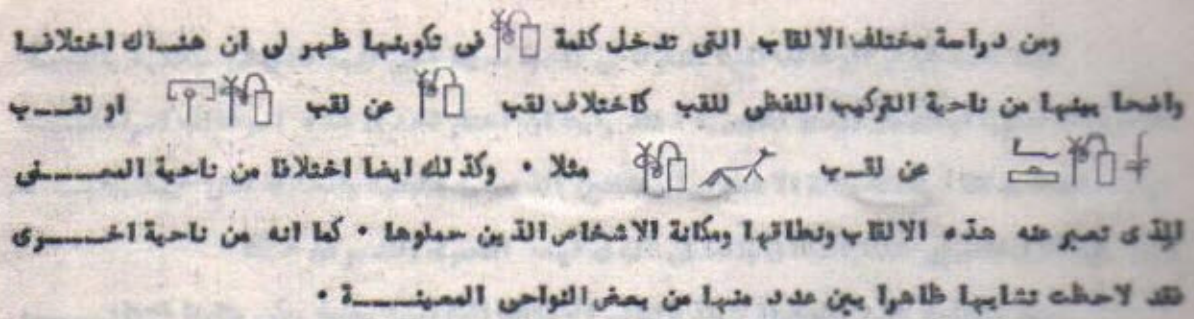 ومن دراسة مختلف الالقاب التى تدخل كلمة فى تكوينها ظهر لى ان هنـاك اختلافـا
واضحا بينها من ناحية التركيب اللفظى للقب كاختلاف لقب عن لقب او لقـــب
عن لقـب مثلا ٠ وكذلك ايضا اختلافا من ناحية المعـــنى
الذى تعبر عنه هذه الالقاب ونطاقها ومكانة الاشخاص الذين حملوها ٠ كما انه من ناحية اخـــرى
فقد لاحظت تشابها ظاهرا بين عدد منها من بعض النواحى المعينـــة ٠